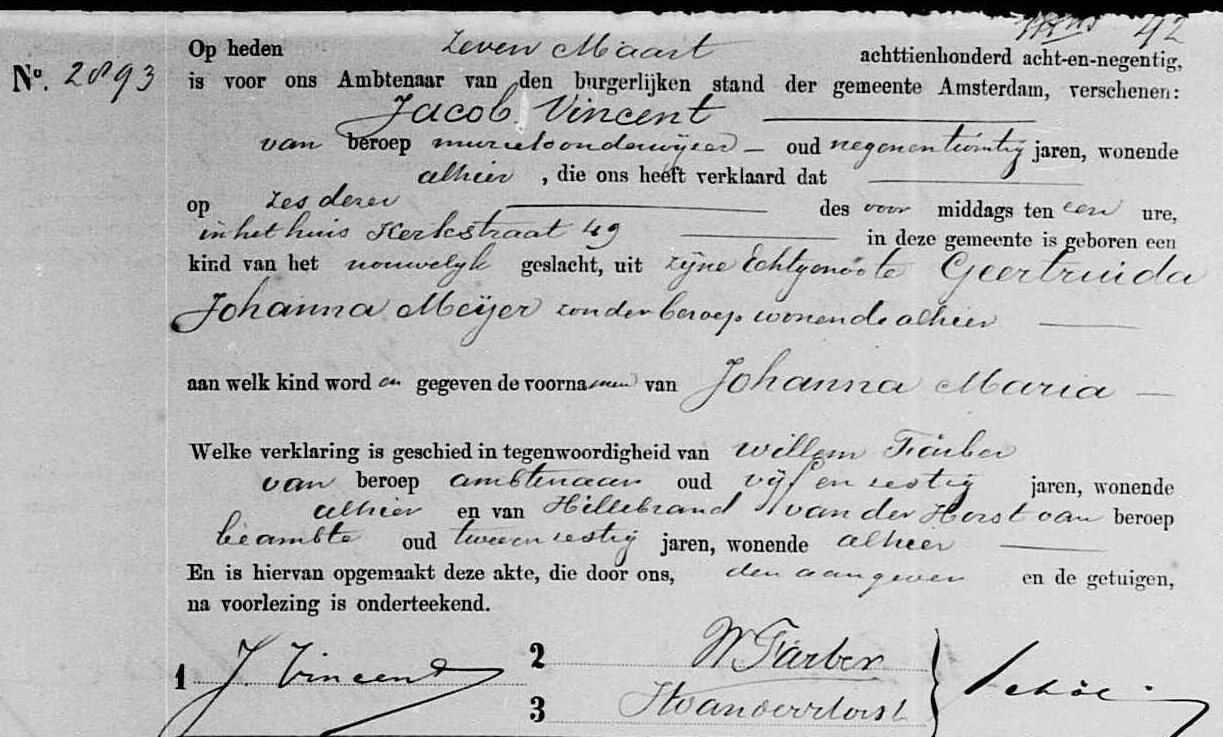 42
Op heden Zeven Maart achttienhonderd acht-en-negentig,
No. 2893 is voor ons Ambtenaar van den burgerlijken stand der gemeente Amsterdam, verschenen:
Jacob Vincent
van beroep muziekonderwijzer oud negenentwintig jaren, wonende
alhier, die ons heeft verklaard dat
op zes dezer des voor middags ten een ure,
in het huis Kerkstraat 49 in deze gemeente is geboren een
kind van het vrouwelijk geslacht, uit zijne Echtgenoote Geertruida
Johanna Meijer zonder beroep wonende alhier
aan welk kind word en gegeven de voornamen van Johanna Maria
Welke verklaring is geschied in tegenwoordigheid van Willem Färber
van beroep ambtenaar oud vijf en zestig jaren, wonende
alhier en van Hillebrand van der Horst van beroep
beambte oud tweeenzestig jaren, wonende alhier
En is hiervan opgemaakt deze akte, die door ons, den aangever en de getuigen,
na voorlezing is onderteekend.
1 J. Vincent
2 W Färber
3 HvanderHorst